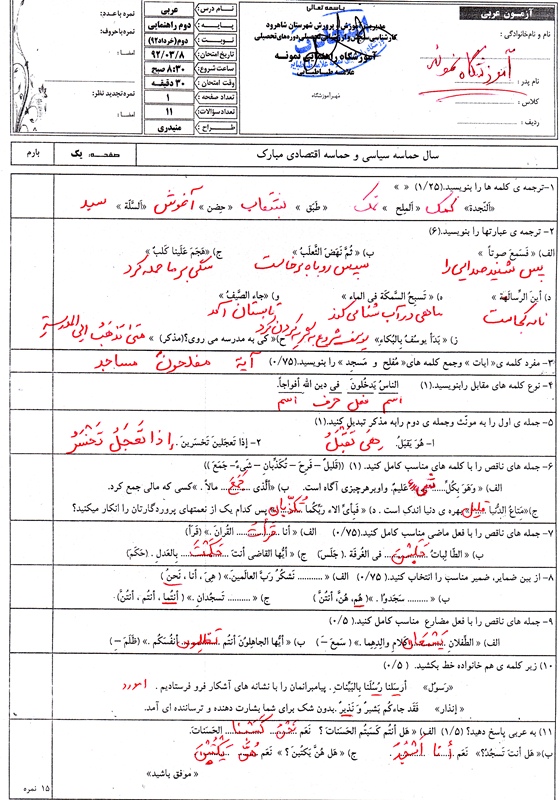 باسمه تعالی
آزمـون عربی
نام و نام‌خانوادگی :
آموزشگاه نمونه
نام پدر :
کلاس :
ردیف :
مدیریت آموزش و پرورش شهرستان شاهرود
آموزشگاه راهنمایی نمونه
علامه طباطبایی
مهرآموزشگاه
نام درس : عربی
پایـه : دوم راهنمایی
نوبت : دوم(خرداد۹۲)
تاریخ امتحان : ۹۲/۰۳/۸
ساعت شروع : ۸:۳۰ صبح
وقت امتحان : ۳۰ دقیقه
تعداد صفحه : ۱
تعداد سؤالات : ۱۱
طـراح : منیدری
نمره با عدد :
نمره باحروف :
امضا :
نمره تجدید نظر :
امضا :
سال حماسه سیاسی و حماسه اقتصادی مبارک
صفحـه: یک
بارم
۱-ترجمه ی کلمه ها را بنویسید.(۱/۲۵) « »
«اَلنَّجدة» کمک «اَلملح » نمک « طَبَق » بشقاب « حِضن » آغوش «اَلسَّلَّة » سبد
۲- ترجمه ی عبارتها را بنویسید.(۶)
الف) « فَسَمِعَ صوتاً » ب) « ثُمَّ نَهَضَ الثَّعلَبُ » ج) «هَجَمَ عَلَینا کَلبٌ »
پس شنید صدایی را سپس روباه برخاست سگی بر ما حمله کرد
د) أینَ الرِّسالَةُ» ه) « تَسبحُ السَّمَکَة فی الماءِ » و) «جاءِ الصَّیفُ »
نامه کجاست ماهی در آب شنا می کند تابستان آمد
ز) « بَدَأ یوسُفُ بِالبُکاءِ» یوسف شروع به گریه کردن کرد ح)« کی به مدرسه می روی؟(مذکر) » متی تَذهَبُ اِلی المدرسةِ
۳- مفرد کلمه ی« آیات » وجمع کلمه های«مُفلِح و مَسجِد » را بنویسید.(۰/۷۵) آیة مفلحونَ مساجد
۴- نوع کلمه های مقابل رابنویسید.(۱) الناسُ یَدخُلونَ فی دین الله أفواجاً.
اسم فعل حرف اسم
۵- جمله ی اول را به مونّث وجمله ی دوم رابه مذکر تبدیل کنید.(۱)
۱- هُوَ یَقبَلُ. هِیَ تَقبَلُ ۲- إذا تَعجَلینَ تَخسَرینَ. إذا تَعجَلُ تَخسَرُ
۶- جمله های ناقص را با کلمه های مناسب کامل کنید. (۱) ((قَلیلٌ – فَرِحَ – تُکَذِّبانِ – شَیءٍ- جَمَعَ ))
الف) « وَهُوَ بِکُلِّ شیءٍ عَلیمٌ واوبرهرچیزی آگاه است. ب) «اَلَّذی جَمَعَ مالاً .» کسی که مالی جمع کرد.
ج)«مَتاعُ الدُّنیا قلیل» بهره ی دنیا اندک است . د) « فَبِأیِّ آلاءِ رَبِّکُما تُکَذِّبانِ پس کدام یک از نعمتهای پروردگارتان را انکار میکنید؟
۷- جمله های ناقص را با فعل ماضی مناسب کامل کنید. (۰/۷۵) الف) « أنا قَرأتُ القُرآنَ.» (قَرأ)
ب) « الطّالِباتُ جَلَسنَ فی الغُرفَة .( جَلَسَ) ج) « أیُّها القاضی أنتَ حَکَمتَ بِالعَدلِ . (حَکَمَ)
۸- از بین ضمایر، ضمیر مناسب را انتخاب کنید. (۰/۷۵) الف) « .......... نَشکُرُ رَبَّ العالَمینَ.» (هِیَ ، أنا ، نَحنُ )
ب) « ......... سَجَدوا . » ( هُم، هُنَّ، أنتُنَّ ) ج) « ......... تَسجُدانِ . » ( أنتُما ، أنتُم ، أنتُنَّ)
۹- جمله های ناقص را با فعل مضارع مناسب کامل کنید. (۰/۵)
الف) « الطِّفلانِ یَسمَعانِ کلامِ والِدِهِما . » ( سَمِعَ –َ ) ب) « أیُّها الجاهِلونَ أنتُم تَظلِمونَ أنفُسَکُم .» (ظَلَمَ –ِ )
۱۰) زیر کلمه ی هم خانواده خط بکشید. (۰/۵ )
«رَسول» أرسَلنا رُسُلَنا بِالبَیِّناتِ . پیامبرانمان را با نشانه های آشکار فرو فرستادیم .
« إنذار» فَقَد جاءَکُم بَشیرٌ وَ نَذیرٌ .بدون شک برای شما بشارت دهنده و ترساننده ای آمد.
۱۱) به عربی پاسخ دهید؟ (۱/۵) الف) « هَل أنتُم کَسَبتُم الحَسَناتَ ؟ نَعَم نَحنُ کَسَبنا الحَسَنات.
ب)« هَل أنتَ تَسجُدُ؟» نَعَم أنا أسجُدُ ج) « هَل هُنَّ یَکتُبنَ ؟ » نَعَم هُنَّ یَکتُبنَ
« موفق باشید»
۱۵ نمره